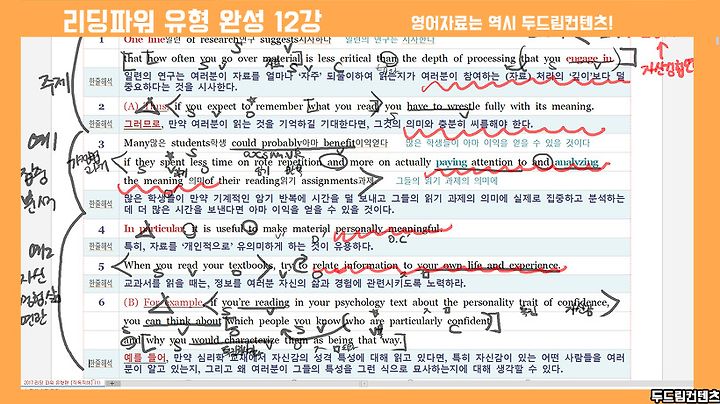 리딩파워 유형 완성 12강
영어자료는 역시 두드림컨텐츠!
1 One line일련 of research연구 suggests시사하다 일련의 연구는 시사한다
that how often you go over material is less critical than the depth of processing that you engage in.
한줄해석 일련의 연구는 여러분이 자료를 얼마나 '자주' 되풀이하여 읽는지가 여러분이 참여하는 (자료) 처리의 '깊이'보다 덜
중요하다는 것을 시사한다.
주제
2 (A) Thus, if you expect to remember what you read, you have to wrestle fully with its meaning.
한줄해석 그러므로, 만약 여러분이 읽는 것을 기억하길 기대한다면, 그것의 의미와 충분히 씨름해야 한다.
예1
3 Many많은 students학생 could probably아마 benefit이익얻다 많은 학생들이 아마 이익을 얻을 수 있을 것이다
if they spent less time on rote repetition and more on actually paying attention to and analyzing
the meaning 의미 of their reading읽기 assignments과제 그들의 읽기 과제의 의미에
한줄해석 많은 학생들이 만약 기계적인 암기 반복에 시간을 덜 보내고 그들의 읽기 과제의 의미에 실제로 집중하고 분석하는
데 더 많은 시간을 보낸다면 아마 이익을 얻을 수 있을 것이다.
4 In particular, it is useful to make material personally meaningful.
한줄해석 특히, 자료를 '개인적으로' 유의미하게 하는 것이 유용하다.
예2
5 When you read your textbooks, try to relate information to your own life and experience.
한줄해석 교과서를 읽을 때는, 정보를 여러분 자신의 삶과 경험에 관련시키도록 노력하라.
6 (B) For example, if you're reading in your psychology text about the personality trait of confidence,
you can think about which people you know who are particularly confident
and why you would characterize them as being that way.
한줄해석 예를 들어, 만약 심리학 교재에서 자신감의 성격 특성에 대해 읽고 있다면, 특히 자신감이 있는 어떤 사람들을 여러
분이 알고 있는지, 그리고 왜 여러분이 그들의 특성을 그런 식으로 묘사하는지에 대해 생각할 수 있다.
두드림컨텐츠